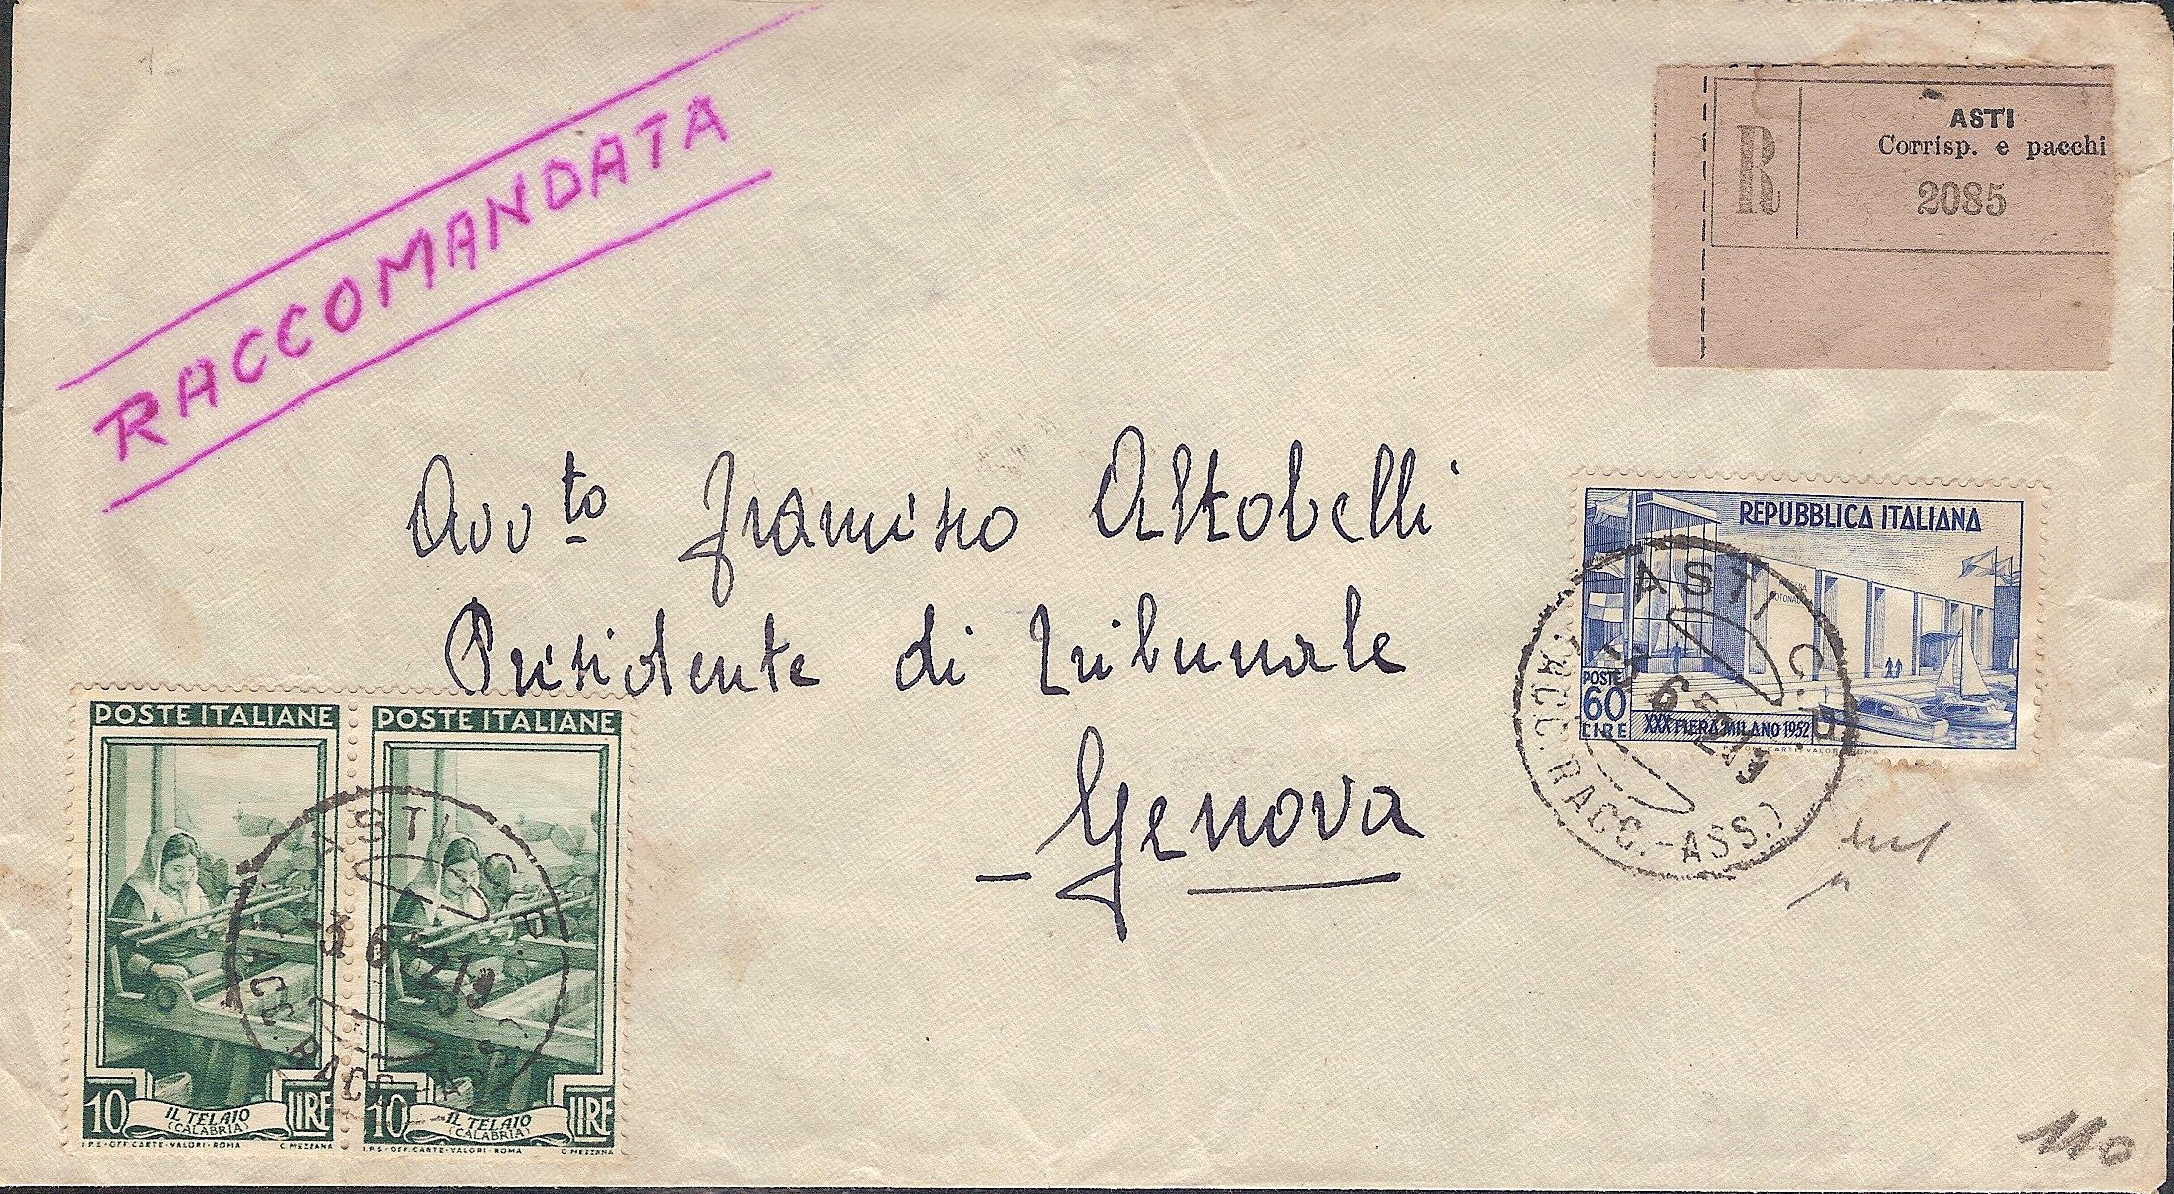 RACCOMANDATA
ASTI
Corrisp. e pacchi
R
2085
Avv.to Francesco Altobelli
Presidente di Tribunale
Genova
REPUBBLICA ITALIANA
POSTE
60
LIRE
XXX FIERA MILANO 1952
ASTI C.P.
(ACC. RACC.-ASS.)
POSTE ITALIANE
10
LIRE
IL TELAIO
(CALABRIA)
I.P.S-OFF.CARTE-VALORI-ROMA
C.MEZZANA
POSTE ITALIANE
10
LIRE
IL TELAIO
(CALABRIA)
I.P.S-OFF.CARTE-VALORI-ROMA
C.MEZZANA
ASTI C.P.
110